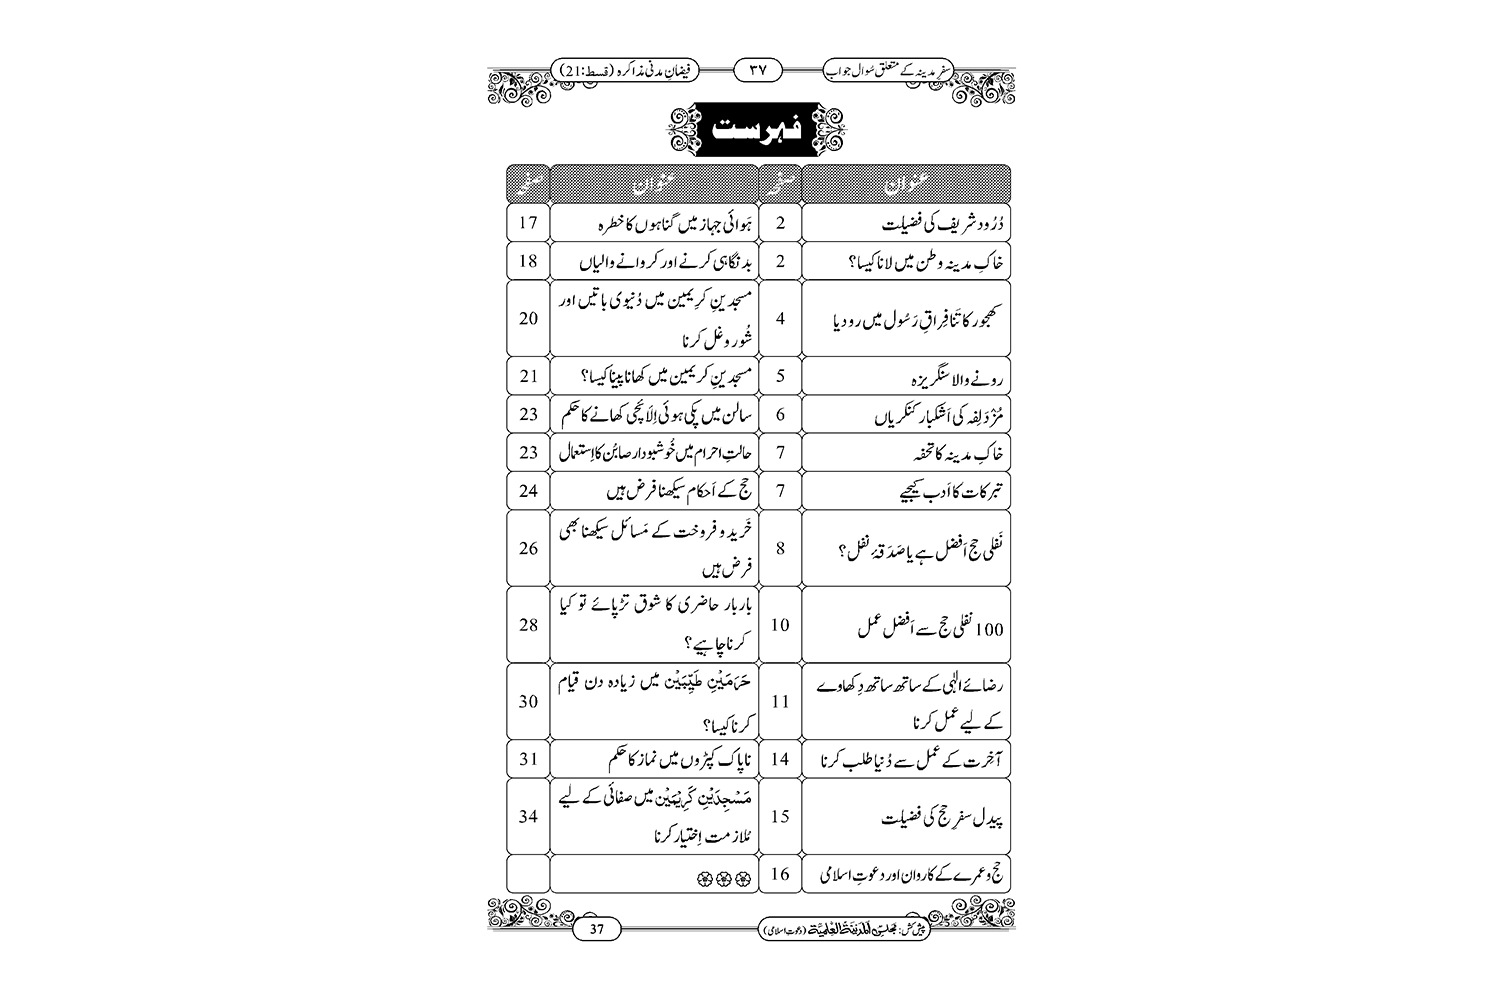 سفرِ مدینہ کے متعلق سُوال جواب ۳۷ فیضانِ مدنی مذاکرہ (قسط:21)
فہرست
عنوان صفحہ عنوان صفحہ
دُرُود شریف کی فضیلت 2 ہَوائی جہاز میں گناہوں کا خطرہ 17
خاکِ مدینہ وطن میں لانا کیسا؟ 2 بدنگاہی کرنے اور کروانے والیاں 18
کھجور کا تَنا فِراقِ رَسُول میں رو دیا 4 مسجدینِ کریمین میں دُنیوی باتیں اور
شُور و غل کرنا 20
رونے والا سنگریزہ 5 مسجدینِ کریمین میں کھانا پینا کیسا؟ 21
مُزْدَلِفہ کی اَشکبار کنکریاں 6 سالن میں پکی ہوئی اِلائچی کھانے کا حکم 23
خاکِ مدینہ کا تحفہ 7 حالتِ احرام میں خُوشبودار صابُن کا اِستعمال 23
تبرکات کا اَدب کیجیے 7 حج کے اَحکام سیکھنا فرض ہیں 24
نَفلی حج اَفضل ہے یا صَدَقۂ نفل؟ 8 خَرید و فروخت کے مَسائل سیکھنا بھی
فرض ہیں 26
100 نفلی حج سے اَفضل عمل 10 باربار حاضری کا شوق تڑپائے تو کیا
کرنا چاہیے؟ 28
رضائے الٰہی کے ساتھ ساتھ دِکھاوے 11 حَرَمَیْنِ طَیِّبَیْن میں زیادہ دن قیام
کے لیے عمل کرنا کرنا کیسا؟ 30
آخِرت کے عمل سے دُنیا طلب کرنا 14 ناپاک کپڑوں میں نماز کا حکم 31
پیدل سفرِ حج کی فضیلت 15 مَسْجِدَیْنِ کَرِیْمَیْن میں صفائی کے لیے
مُلازمت اِختیار کرنا 34
حج و عمرے کے کاروان اور دعوتِ اسلامی 16
پیش کش: مجلس اَلْمَدِیْنَۃُ الْعِلْمِیَّۃ (دعوتِ اسلامی) 37